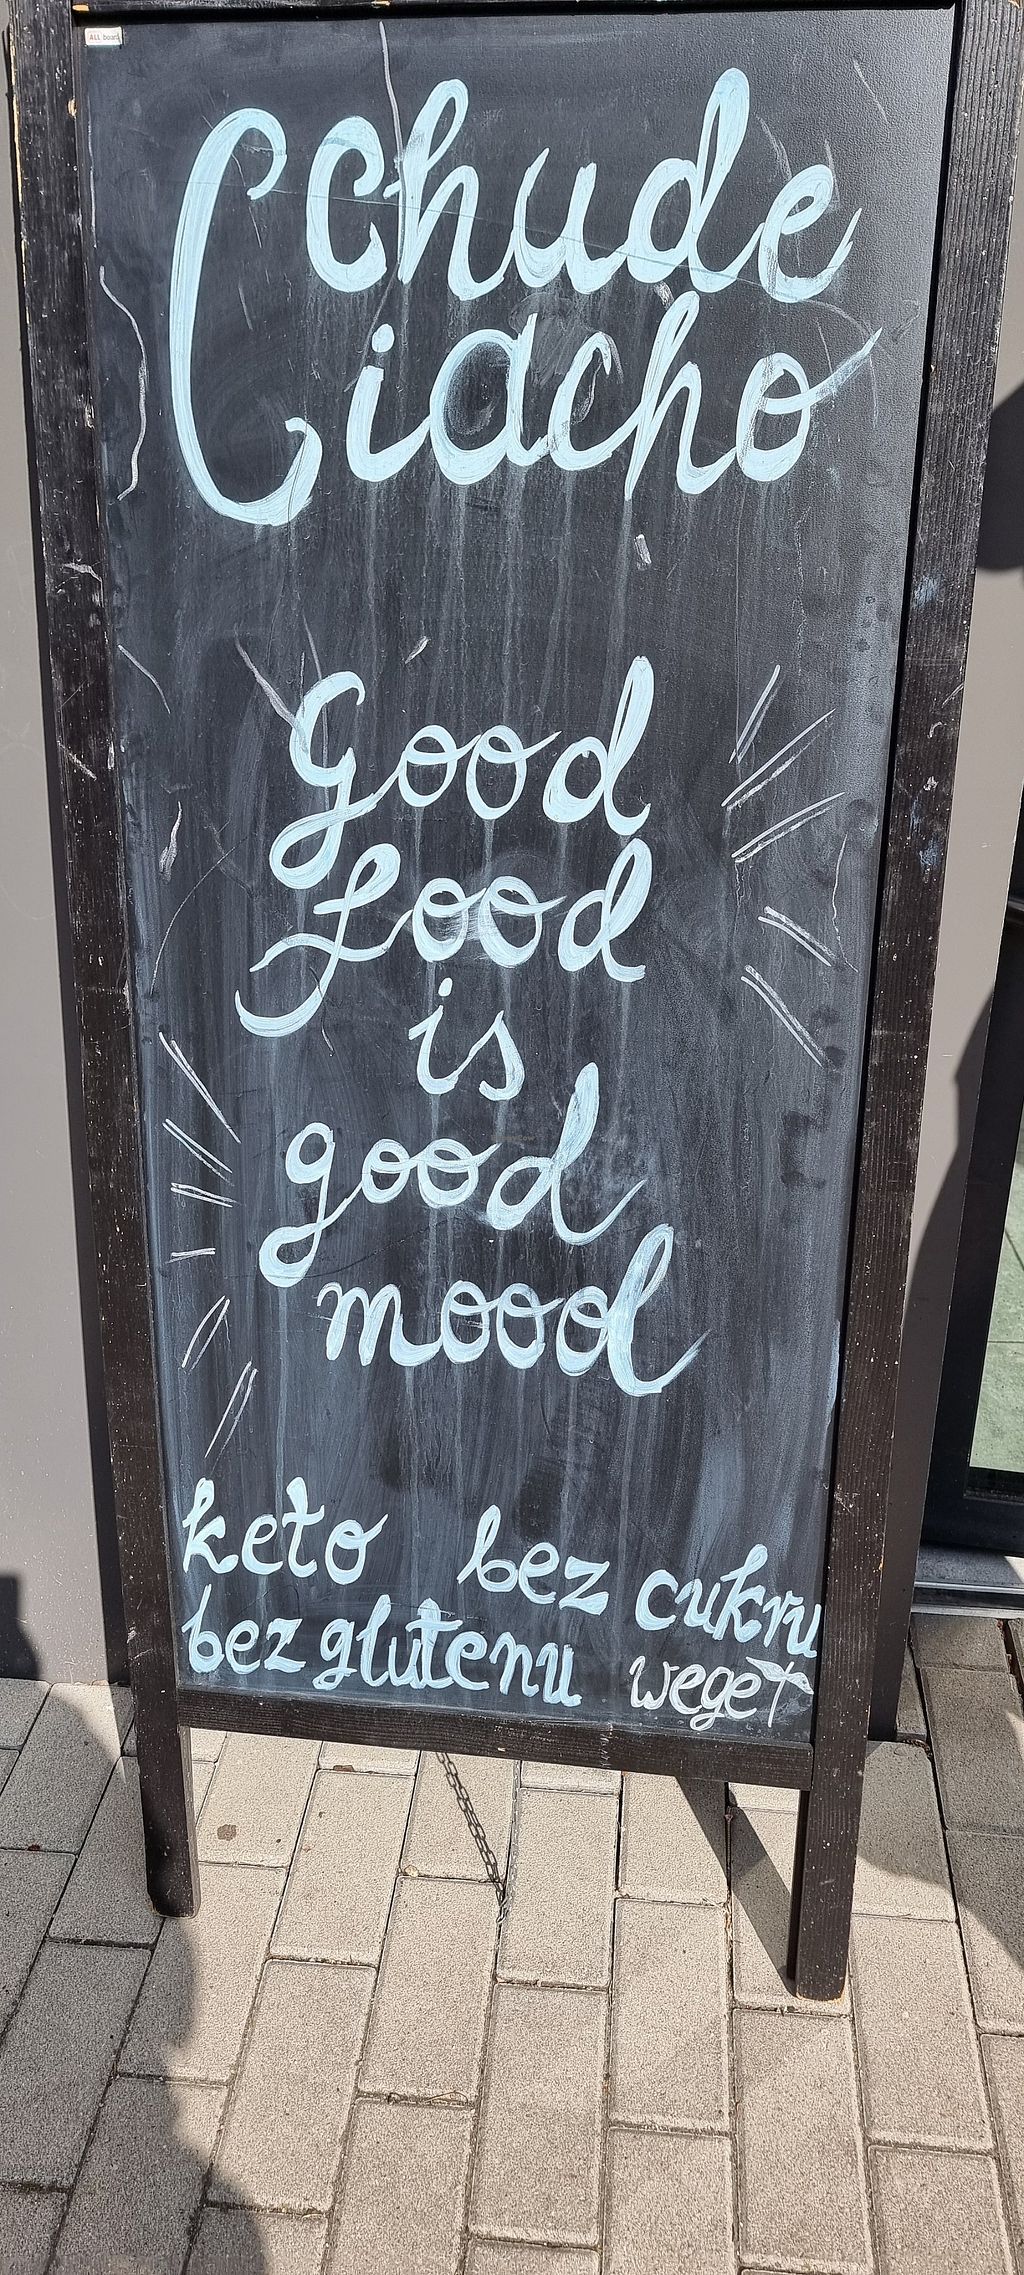 ALL board
Chude
Ciacho
Good
food
is
good
mood
keto bez cukru
bez glutenu weget